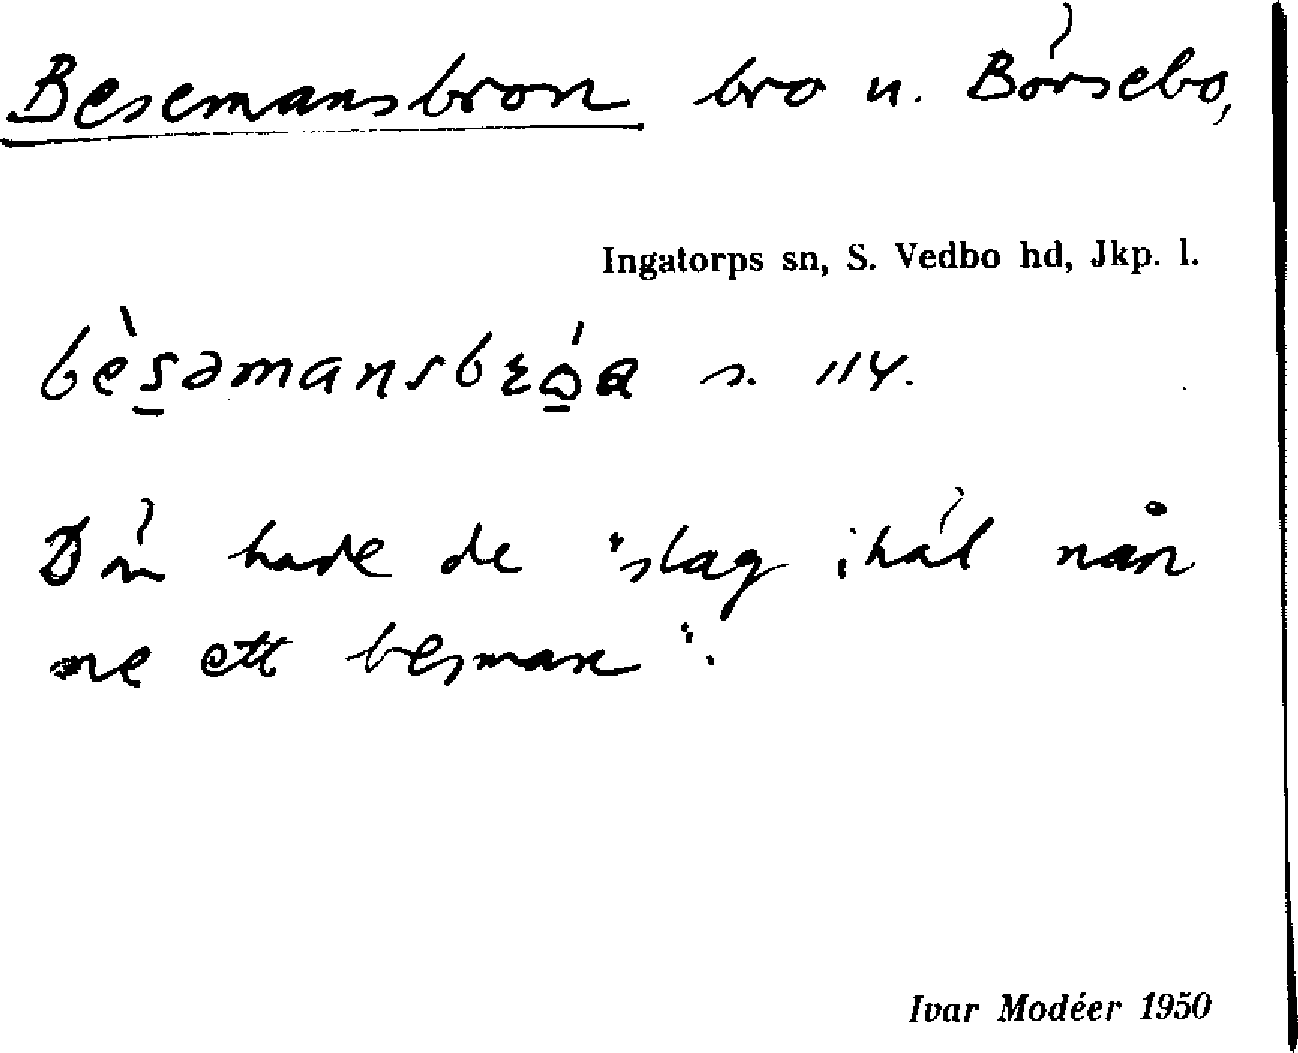 Besemansbron bro n. Börsebo,
Ingatorps sn, S. Vedbo hd, Jkp. l.
s. 114.
Där hade de "slag ihäl nån
me ett besman".
Ivar Modéer 1950